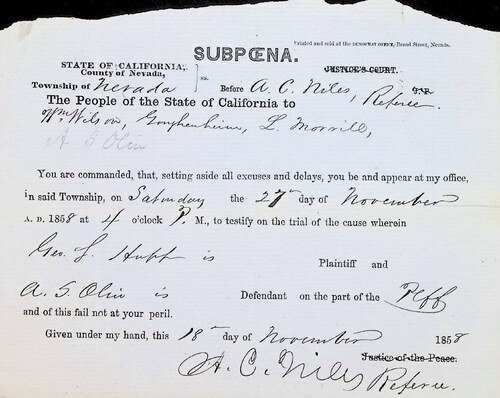 Printed and sold at the DEMOCRAT OFFICE, Broad Street, Nevada.
SUBPŒNA.
STATE OF CALIFORNIA,
County of Nevada,
ss.
JUSTICE'S COURT.
Township of Nevada Before A. C. Niles, J.P. Referee.
The People of the State of California to
Wm Wilson, Gonghenheim, L. Morrill,
A S Olin
You are commanded, that, setting aside all excuses and delays, you be and appear at my office,
in said Township, on Saturday the 27 day of November
A. D. 1858 at 4 o'clock P. M., to testify on the trial of the cause wherein
Geo. L. Hupp is Plaintiff and
A. S. Olin is Defendant on the part of the Plff
and of this fail not at your peril.
Given under my hand, this 18 day of November 1858
Justice of the Peace.
A. C. Niles Referee.